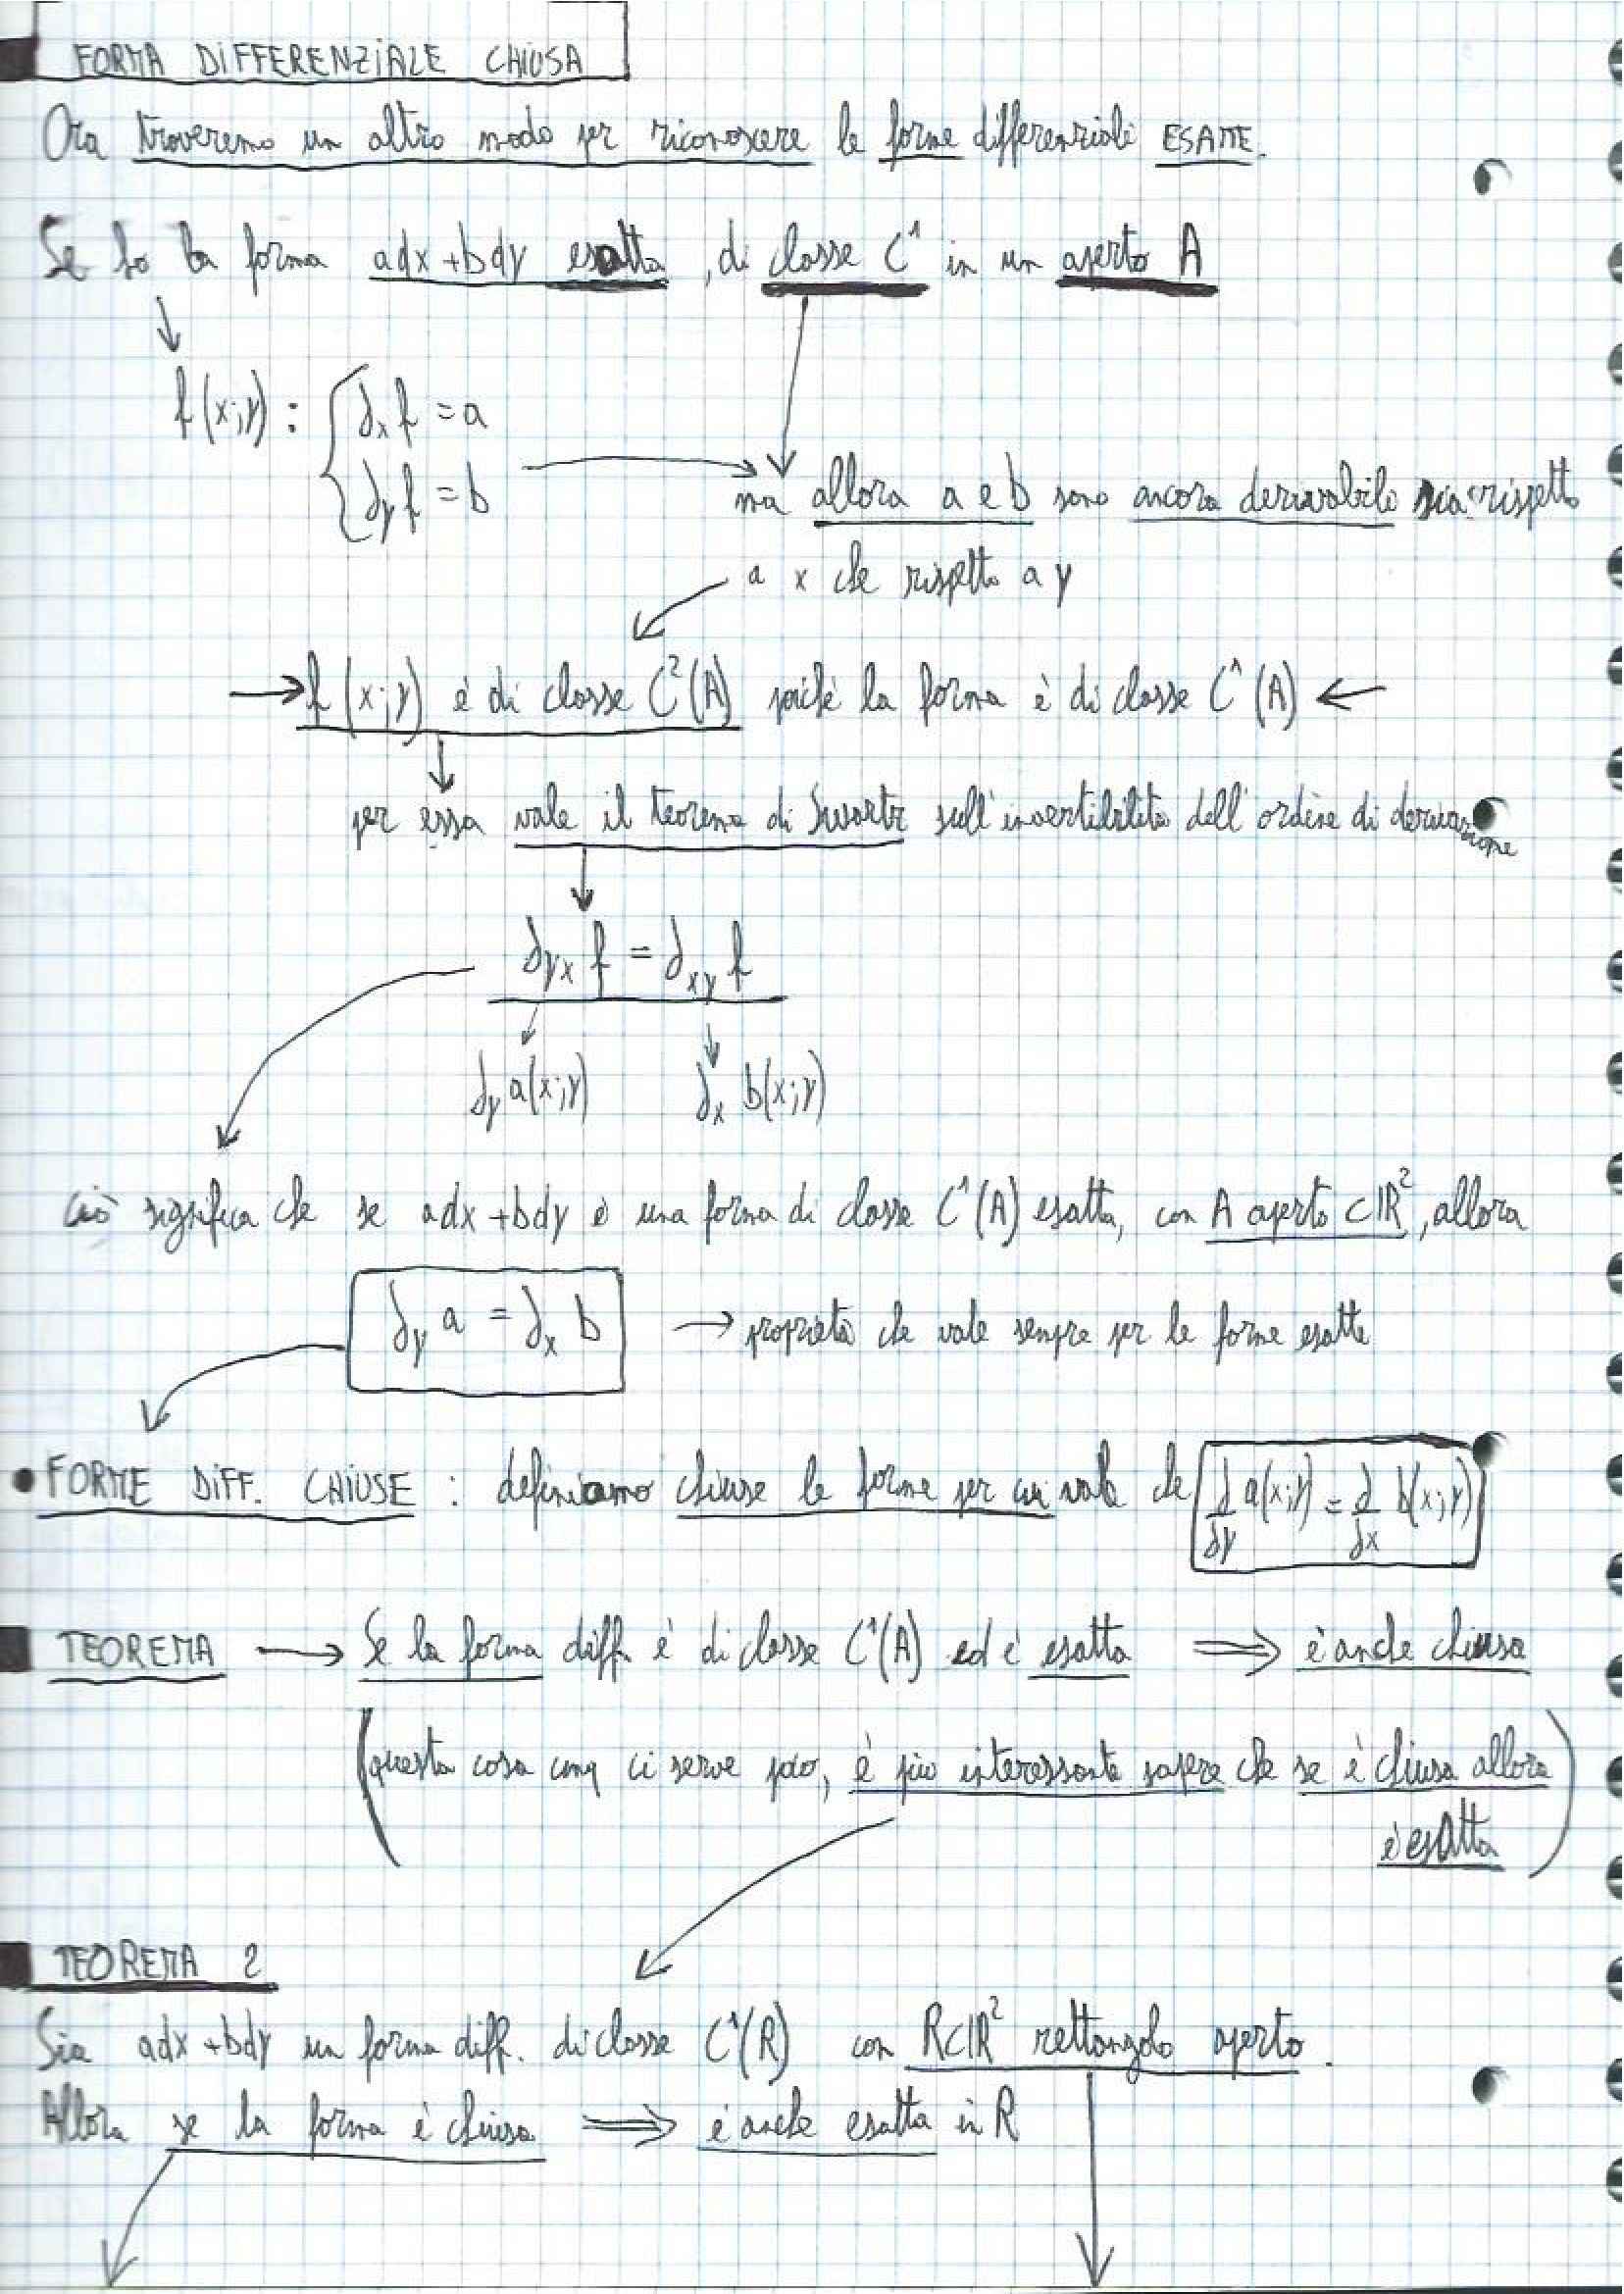 FORMA DIFFERENZIALE CHIUSA
Ora troveremo un altro modo per riconoscere le forme differenziali ESATTE.
Se ho la forma adx+bdy esatta, di classe C¹ in un aperto A
f(x;y): { ∂x f = a
∂y f = b
ma allora a e b sono ancora derivabili sia rispetto
a x che rispetto a y
→ f(x;y) è di classe C²(A) poiché la forma è di classe C¹(A) ←
per essa vale il teorema di Swartz sull'invertibilità dell'ordine di derivazione
∂yx f = ∂xy f
∂y a(x;y) ∂x b(x;y)
ciò significa che se adx+bdy è una forma di classe C¹(A) esatta, con A aperto ⊂ ℝ², allora
∂y a = ∂x b → proprietà che vale sempre per le forme esatte
• FORME DIFF. CHIUSE : definiamo chiuse le forme per cui vale che ∂/∂y a(x;y) = ∂/∂x b(x;y)
TEOREMA → Se la forma diff. è di classe C¹(A) ed è esatta ⇒ è anche chiusa
(questa cosa cmq ci serve poco, è più interessante sapere che se è chiusa allora
è esatta)
TEOREMA 2
Sia adx+bdy un forma diff. di classe C¹(R) con R⊂ℝ² rettangolo aperto.
Allora se la forma è chiusa ⇒ è anche esatta in R